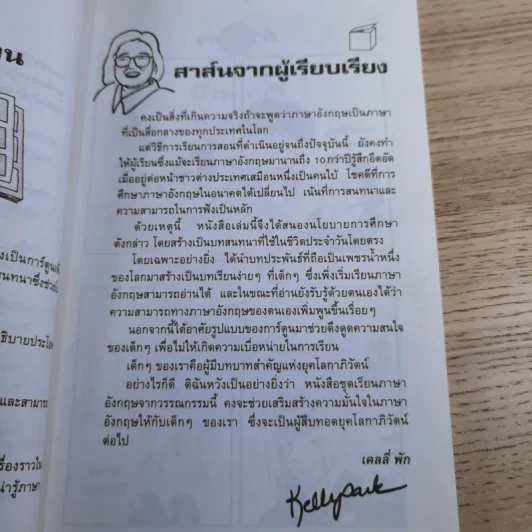 าน
งเป็นการ์ตูนเพ็
สนทนาซึ่งช่วยใ
ธิบายประโย
และสามาร
รื่องราวใน
น่ารู้ภาษา
สาส์นจากผู้เรียบเรียง
คงเป็นสิ่งที่เกินความจริงถ้าจะพูดว่าภาษาอังกฤษเป็นภาษา
ที่เป็นสื่อกลางของทุกประเทศในโลก
แต่วิธีการเรียนการสอนที่ดำเนินอยู่จนถึงปัจจุบันนี้ ยังคงทำ
ให้ผู้เรียนซึ่งแม้จะเรียนภาษาอังกฤษมานานถึง 10 กว่าปีรู้สึกอึดอัด
เมื่ออยู่ต่อหน้าชาวต่างประเทศเสมือนหนึ่งเป็นคนใบ้ โชคดีที่การ
ศึกษาภาษาอังกฤษในอนาคตได้เปลี่ยนไป เน้นที่การสนทนาและ
ความสามารถในการฟังเป็นหลัก
ด้วยเหตุนี้ หนังสือเล่มนี้จึงได้สนองนโยบายการศึกษา
ดังกล่าว โดยสร้างเป็นบทสนทนาที่ใช้ในชีวิตประจำวันโดยตรง
โดยเฉพาะอย่างยิ่ง ได้นำบทประพันธ์ที่ถือเป็นเพชรน้ำหนึ่ง
ของโลกมาสร้างเป็นบทเรียนง่ายๆ ที่เด็กๆ ซึ่งเพิ่งเริ่มเรียนภาษา
อังกฤษสามารถอ่านได้ และในขณะที่อ่านยังรับรู้ด้วยตนเองได้ว่า
ความสามารถทางภาษาอังกฤษของตนเองเพิ่มพูนขึ้นเรื่อยๆ
นอกจากนี้ได้อาศัยรูปแบบของการ์ตูนมาช่วยดึงดูดความสนใจ
ของเด็กๆ เพื่อไม่ให้เกิดความเบื่อหน่ายในการเรียน
เด็กๆ ของเราคือผู้มีบทบาทสำคัญแห่งยุคโลกาภิวัตน์
อย่างไรก็ดี ดิฉันหวังเป็นอย่างยิ่งว่า หนังสือชุดเรียนภาษา
อังกฤษจากวรรณกรรมนี้ คงจะช่วยเสริมสร้างความมั่นใจในภาษา
อังกฤษให้กับเด็กๆ ของเรา ซึ่งจะเป็นผู้สืบทอดยุคโลกาภิวัตน์
ต่อไป
เคลลี่ พัก
Kelly Park